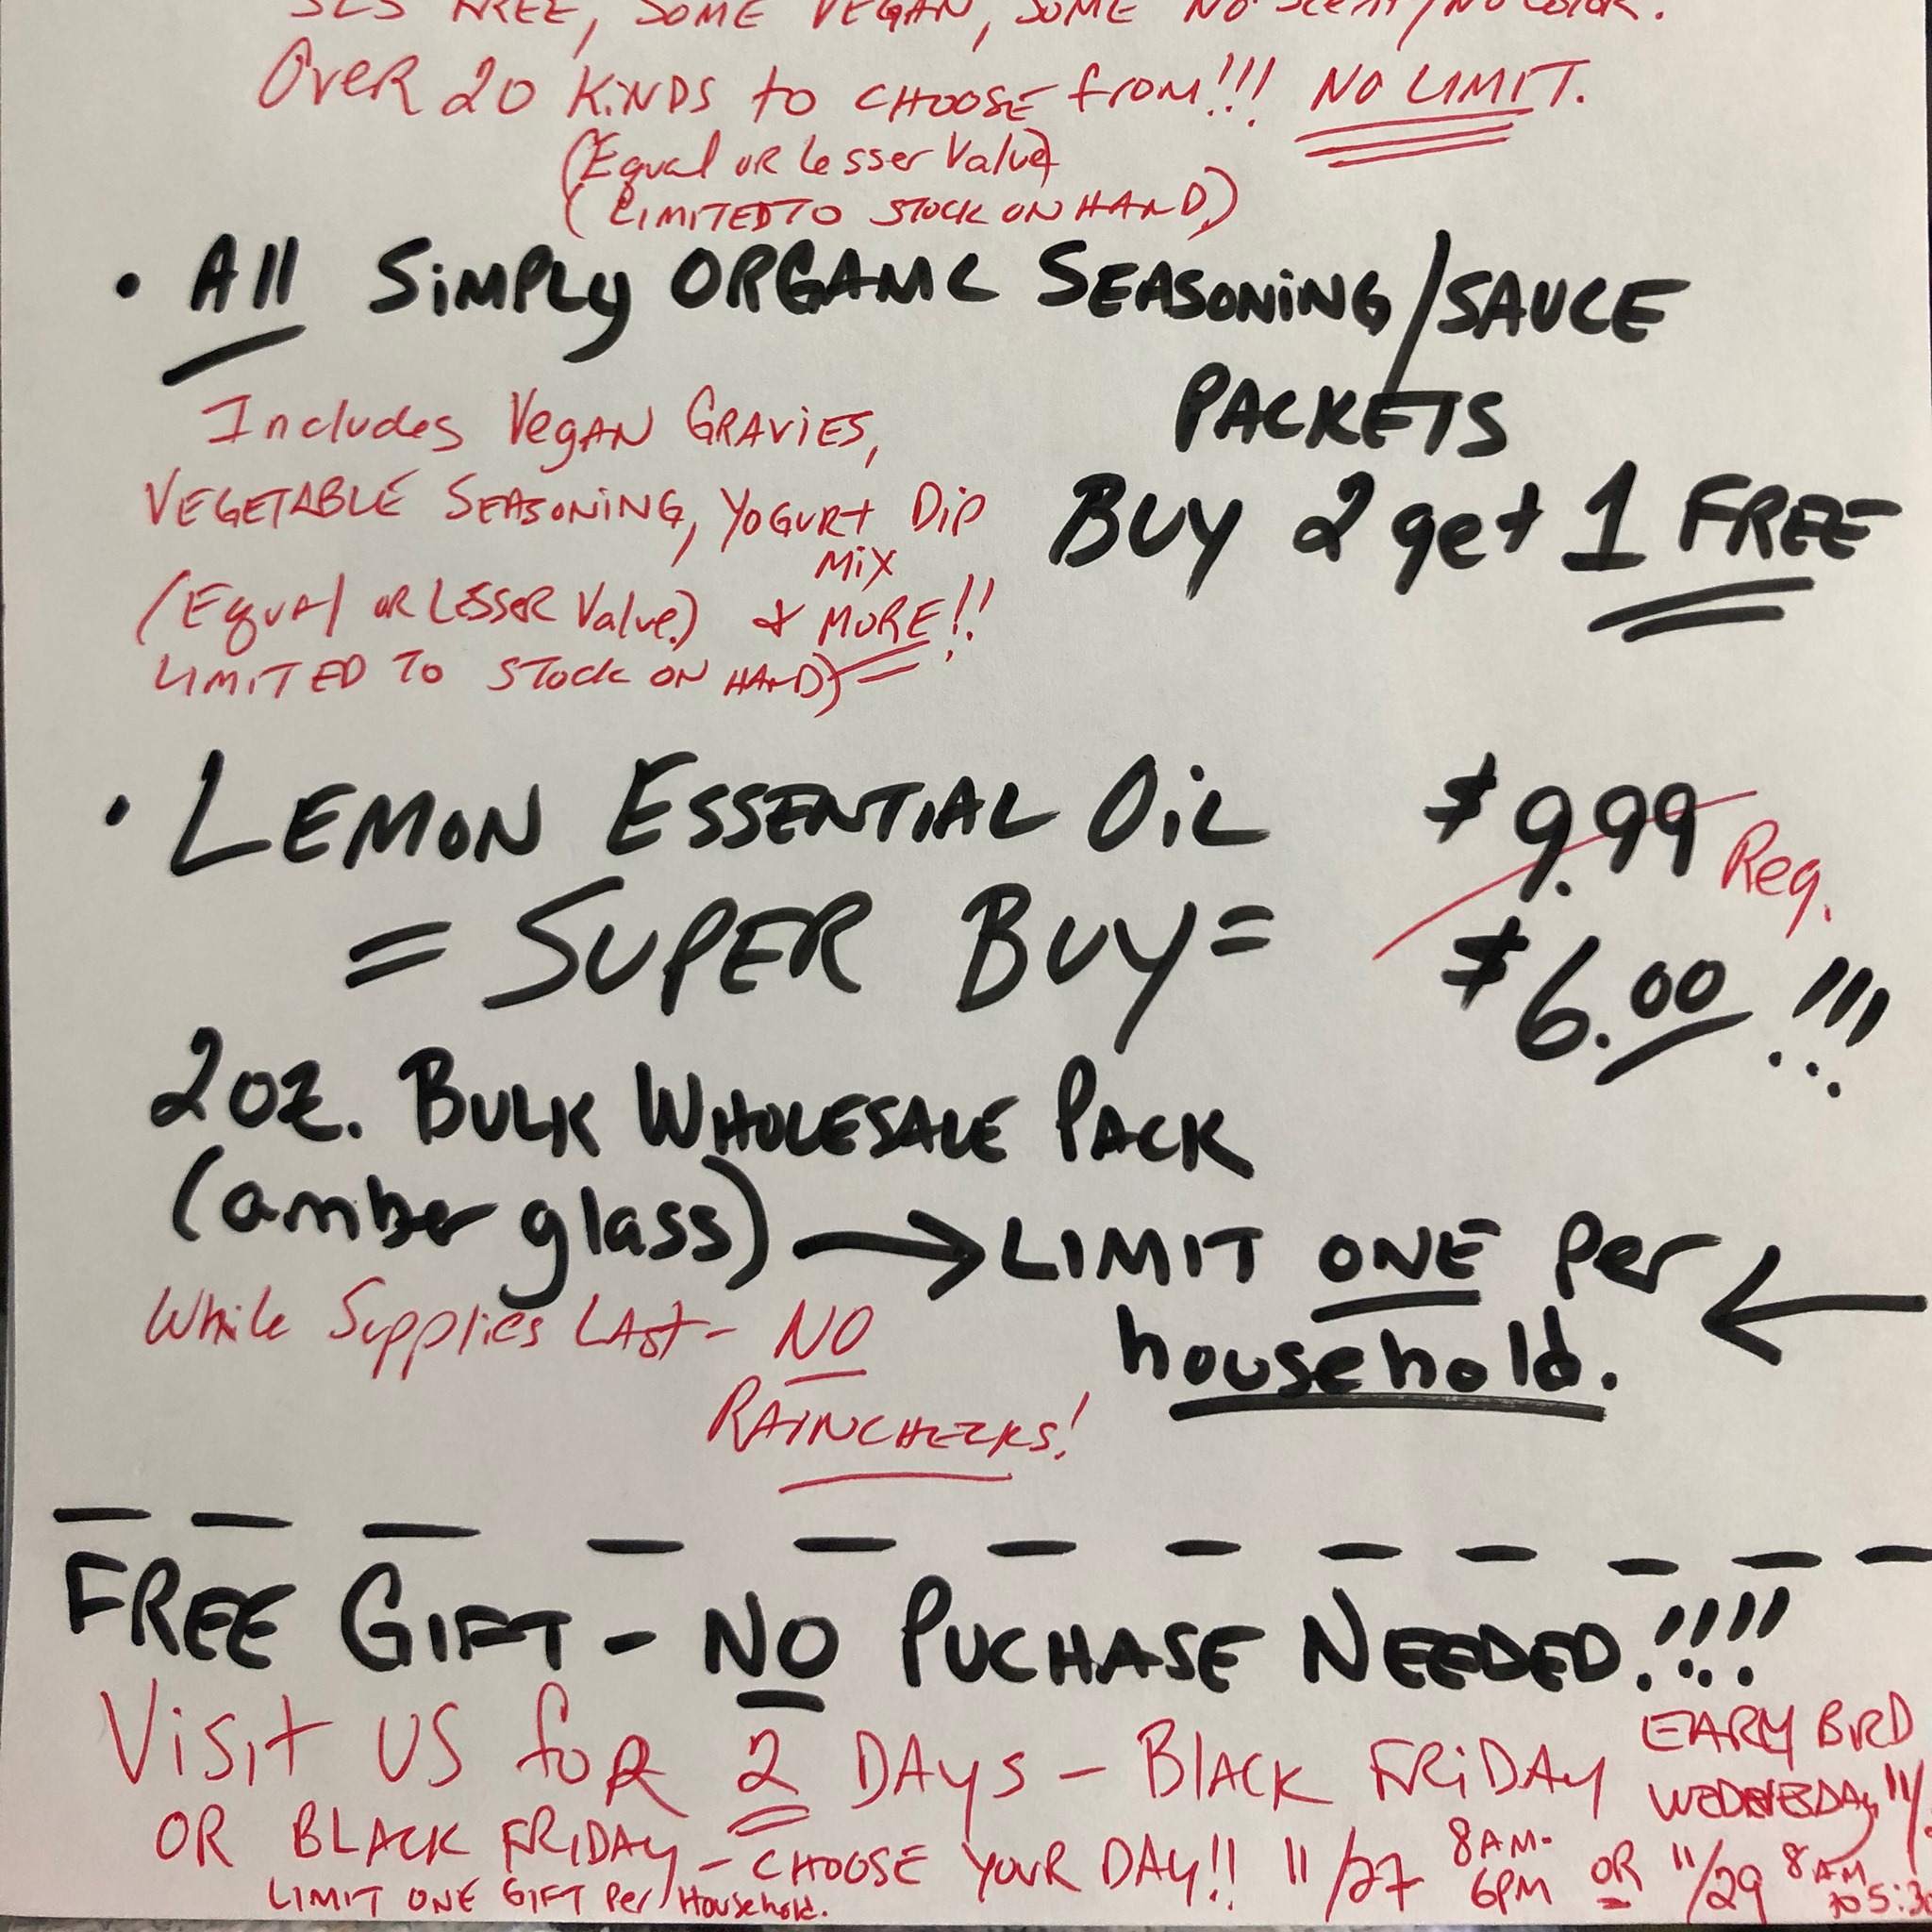 SLS FREE, SOME VEGAN, SOME NO SCENT/NO COLOR.
OVER 20 KINDS to CHOOSE from!!! NO LIMIT.
(Equal OR Lesser Value)
(LIMITED TO STOCK ON HAND)
• All SIMPLY ORGANIC SEASONING/SAUCE
PACKETS
Includes Vegan GRAVIES,
VEGETABLE SEASONING, YOGURT DIP
MIX
BUY 2 get 1 FREE
(Equal OR LESSER Value.) & MORE!!
LIMITED TO STOCK ON HAND)
• LEMON ESSENTIAL OIL $9.99 Reg.
= SUPER BUY = $6.00 !!!
2 OZ. BULK WHOLESALE PACK
(amber glass) → LIMIT ONE Per ←
household.
While Supplies LAst - NO
RAINCHECKS!
FREE GIFT - NO PUCHASE NEEDED!!!!
Visit US foR 2 DAYS - BLACK FRiDAY EARY BIRD
WEDNESDAY 11/
OR BLACK FRIDAY - CHOOSE YOUR DAY!! 11/27 8AM-6PM OR 11/29 8AM to 5:3
LIMIT ONE GIFT Per Household.